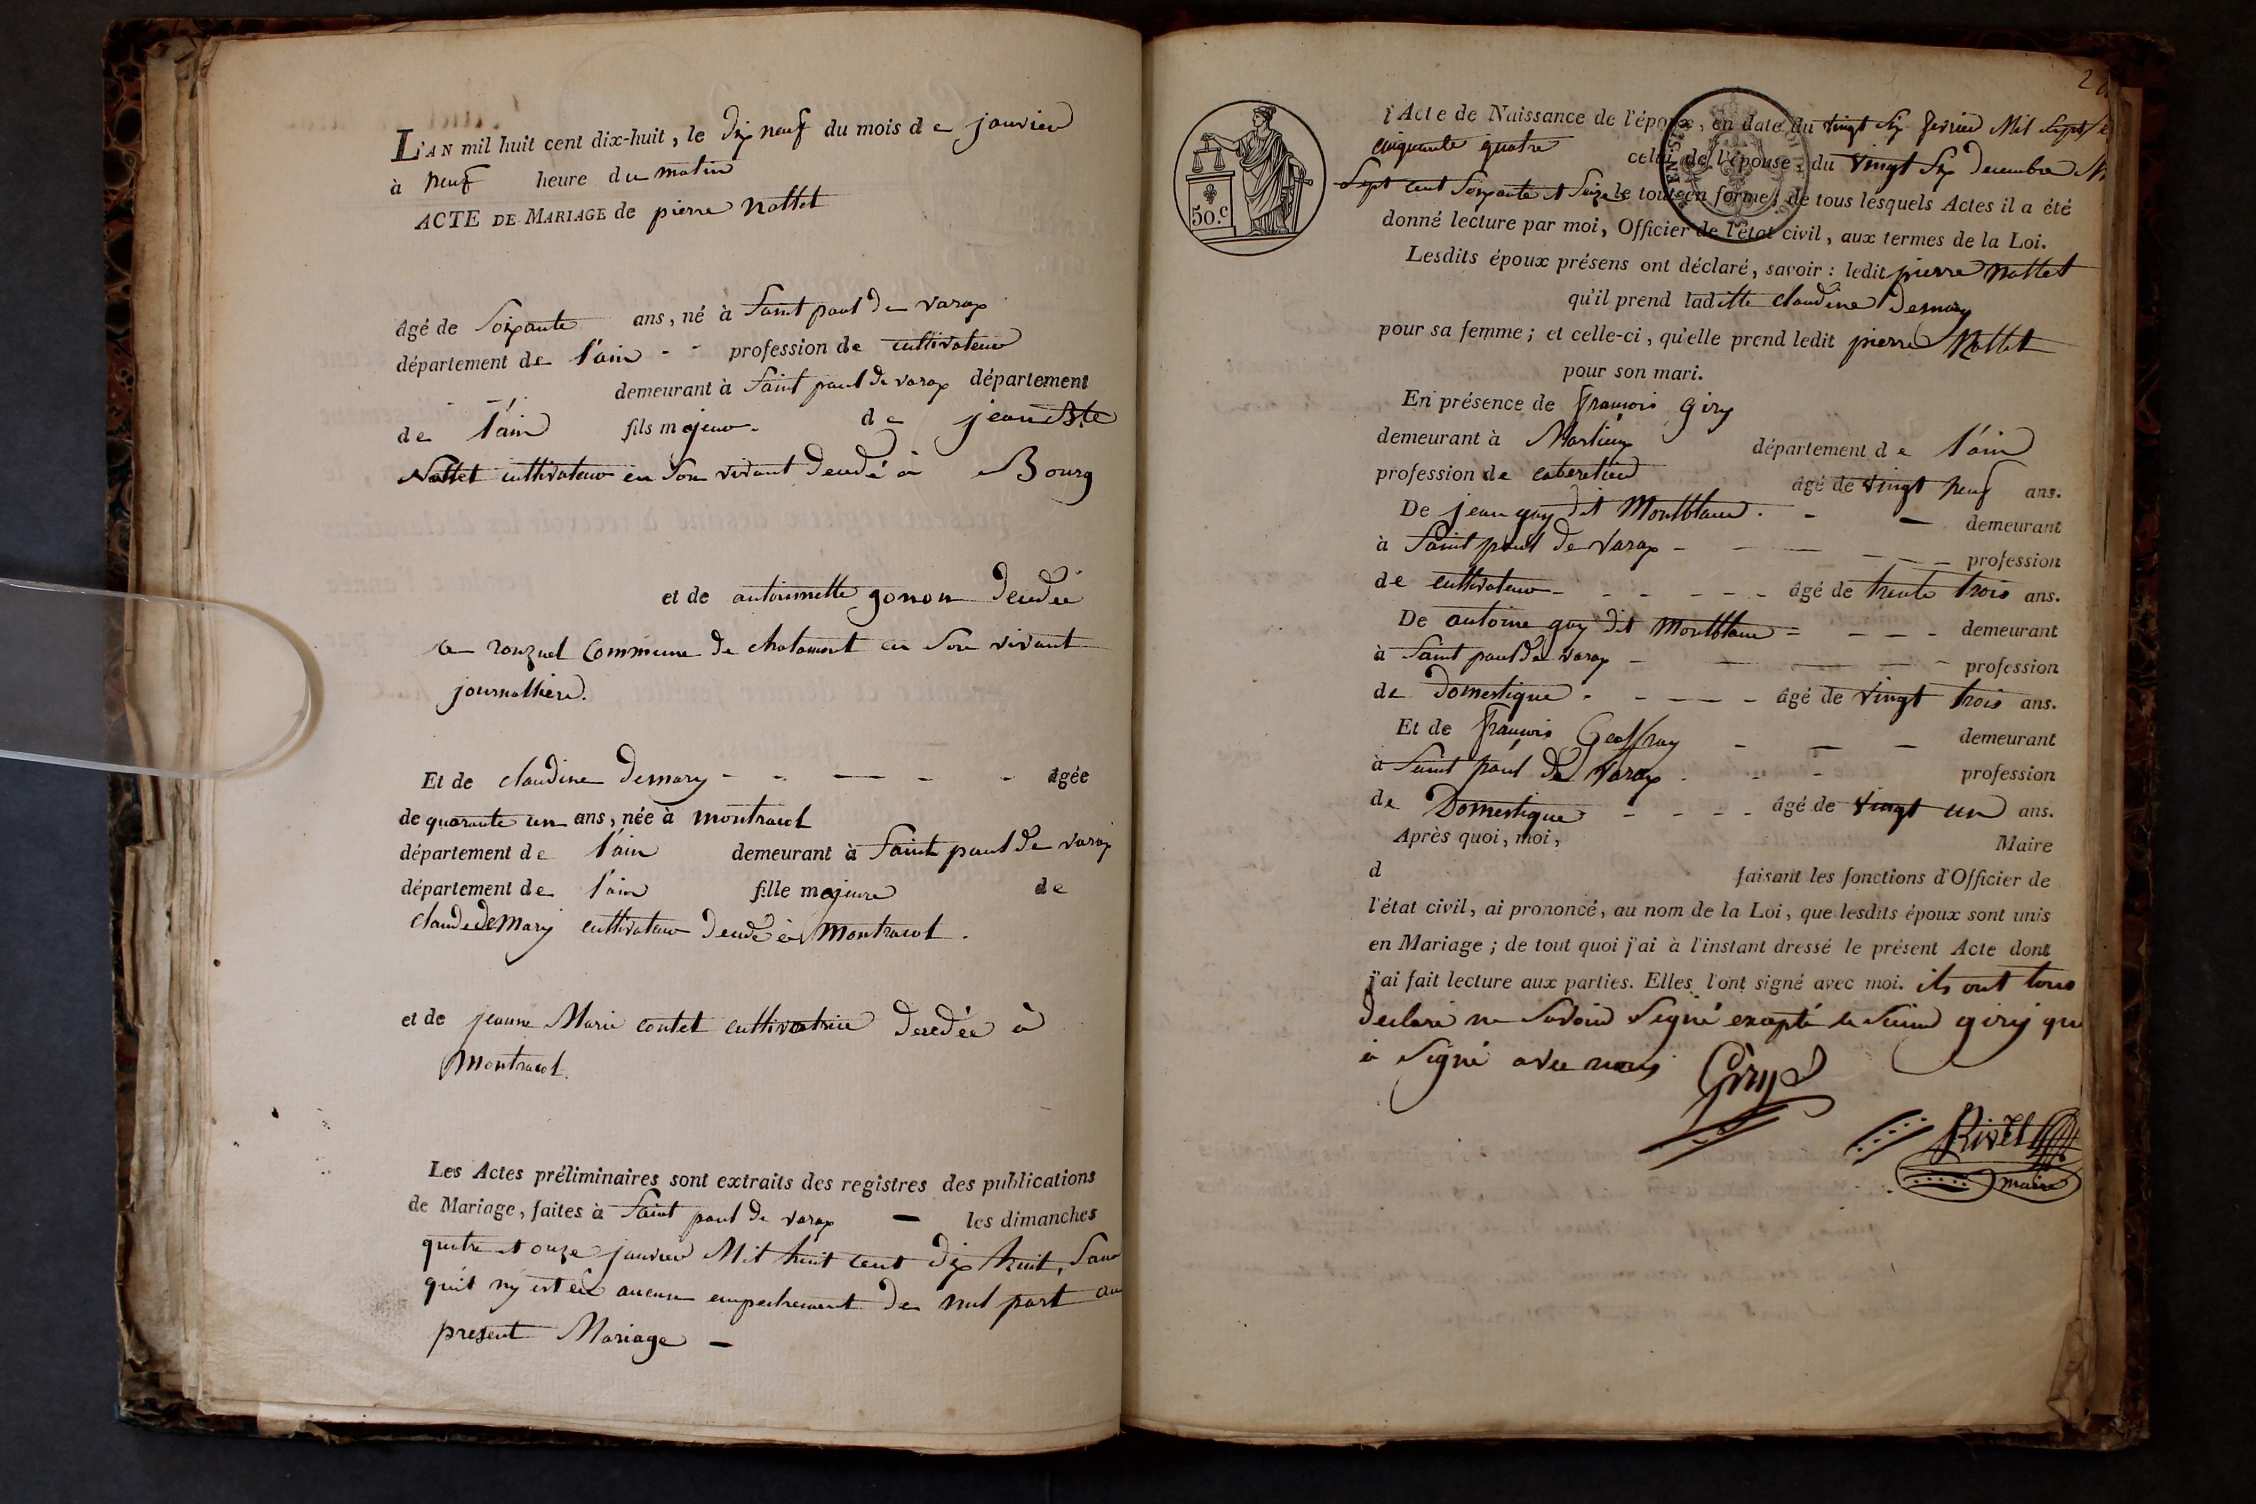 L'AN mil huit cent dix-huit, le dix neuf du mois de janvier
à neuf heure du matin
ACTE DE MARIAGE de pierre Nallet
âgé de Soixante ans, né à Saint paul De varax
département de l'ain - - profession de cultivateur
demeurant à Saint paul De varax département
de l'ain fils majeur. de jean Bte
Nallet cultivateur en Son vivant Decedé à Bourg
et de antoinnette gonon Decedée
a commune De chatamont en Son vivant
journalliere.
Et de claudine Demary - - — - - âgée
de quarante un ans, née à montracol
département de l'ain demeurant à Saint paul De varax
département de l'ain fille majeure de
claude deMary cultivateur Decedé à Montracol.
et de jeanne Marie contet cultivatrice Decedée à
Montracol.
Les Actes préliminaires sont extraits des registres des publications
de Mariage, faites à Saint paul De varax — les dimanches
quatre et onze janvier Mil huit cent Dix huit, Sans
qu'il n'y est eu aucun empechement De nul part au
present Mariage —
50.c
l'Acte de Naissance de l'époux, en date du vingt Six fevrier Mil Sept
cinquante quatre celui de l'épouse, du vingt Six Decembre
Sept cent Soixante et Seize le tout en forme; de tous lesquels Actes il a été
donné lecture par moi, Officier de l'état civil, aux termes de la Loi.
Lesdits époux présens ont déclaré, savoir : ledit pierre Nallet
qu'il prend laditte claudine Demary
pour sa femme; et celle-ci, qu'elle prend ledit pierre Nallet
pour son mari.
En présence de françois Giry
demeurant à Marlieux département de l'ain
profession de cabaretier âgé de vingt neuf ans.
De jean guy dit Montblanc. - — demeurant
à Saint paul De varax - - — - - - profession
de cultivateur - - - - - - âgé de trente trois ans.
De antoine guy dit Montblanc = - - - demeurant
à Saint paul De varax - — - - - profession
de Domestique - - - - - âgé de vingt trois ans.
Et de françois Geoffray - — - demeurant
à Saint paul De varax - - - profession
de Domestique - - - - âgé de vingt un ans.
Après quoi, moi, Maire
d faisant les fonctions d'Officier de
l'état civil, ai prononcé, au nom de la Loi, que lesdits époux sont unis
en Mariage; de tout quoi j'ai à l'instant dressé le présent Acte dont
j'ai fait lecture aux parties. Elles l'ont signé avec moi. ils ont tous
Declaré ne Savoir Signé exepté le Sieur giry qui
à Signé avec nous Giry
Rivet
maire